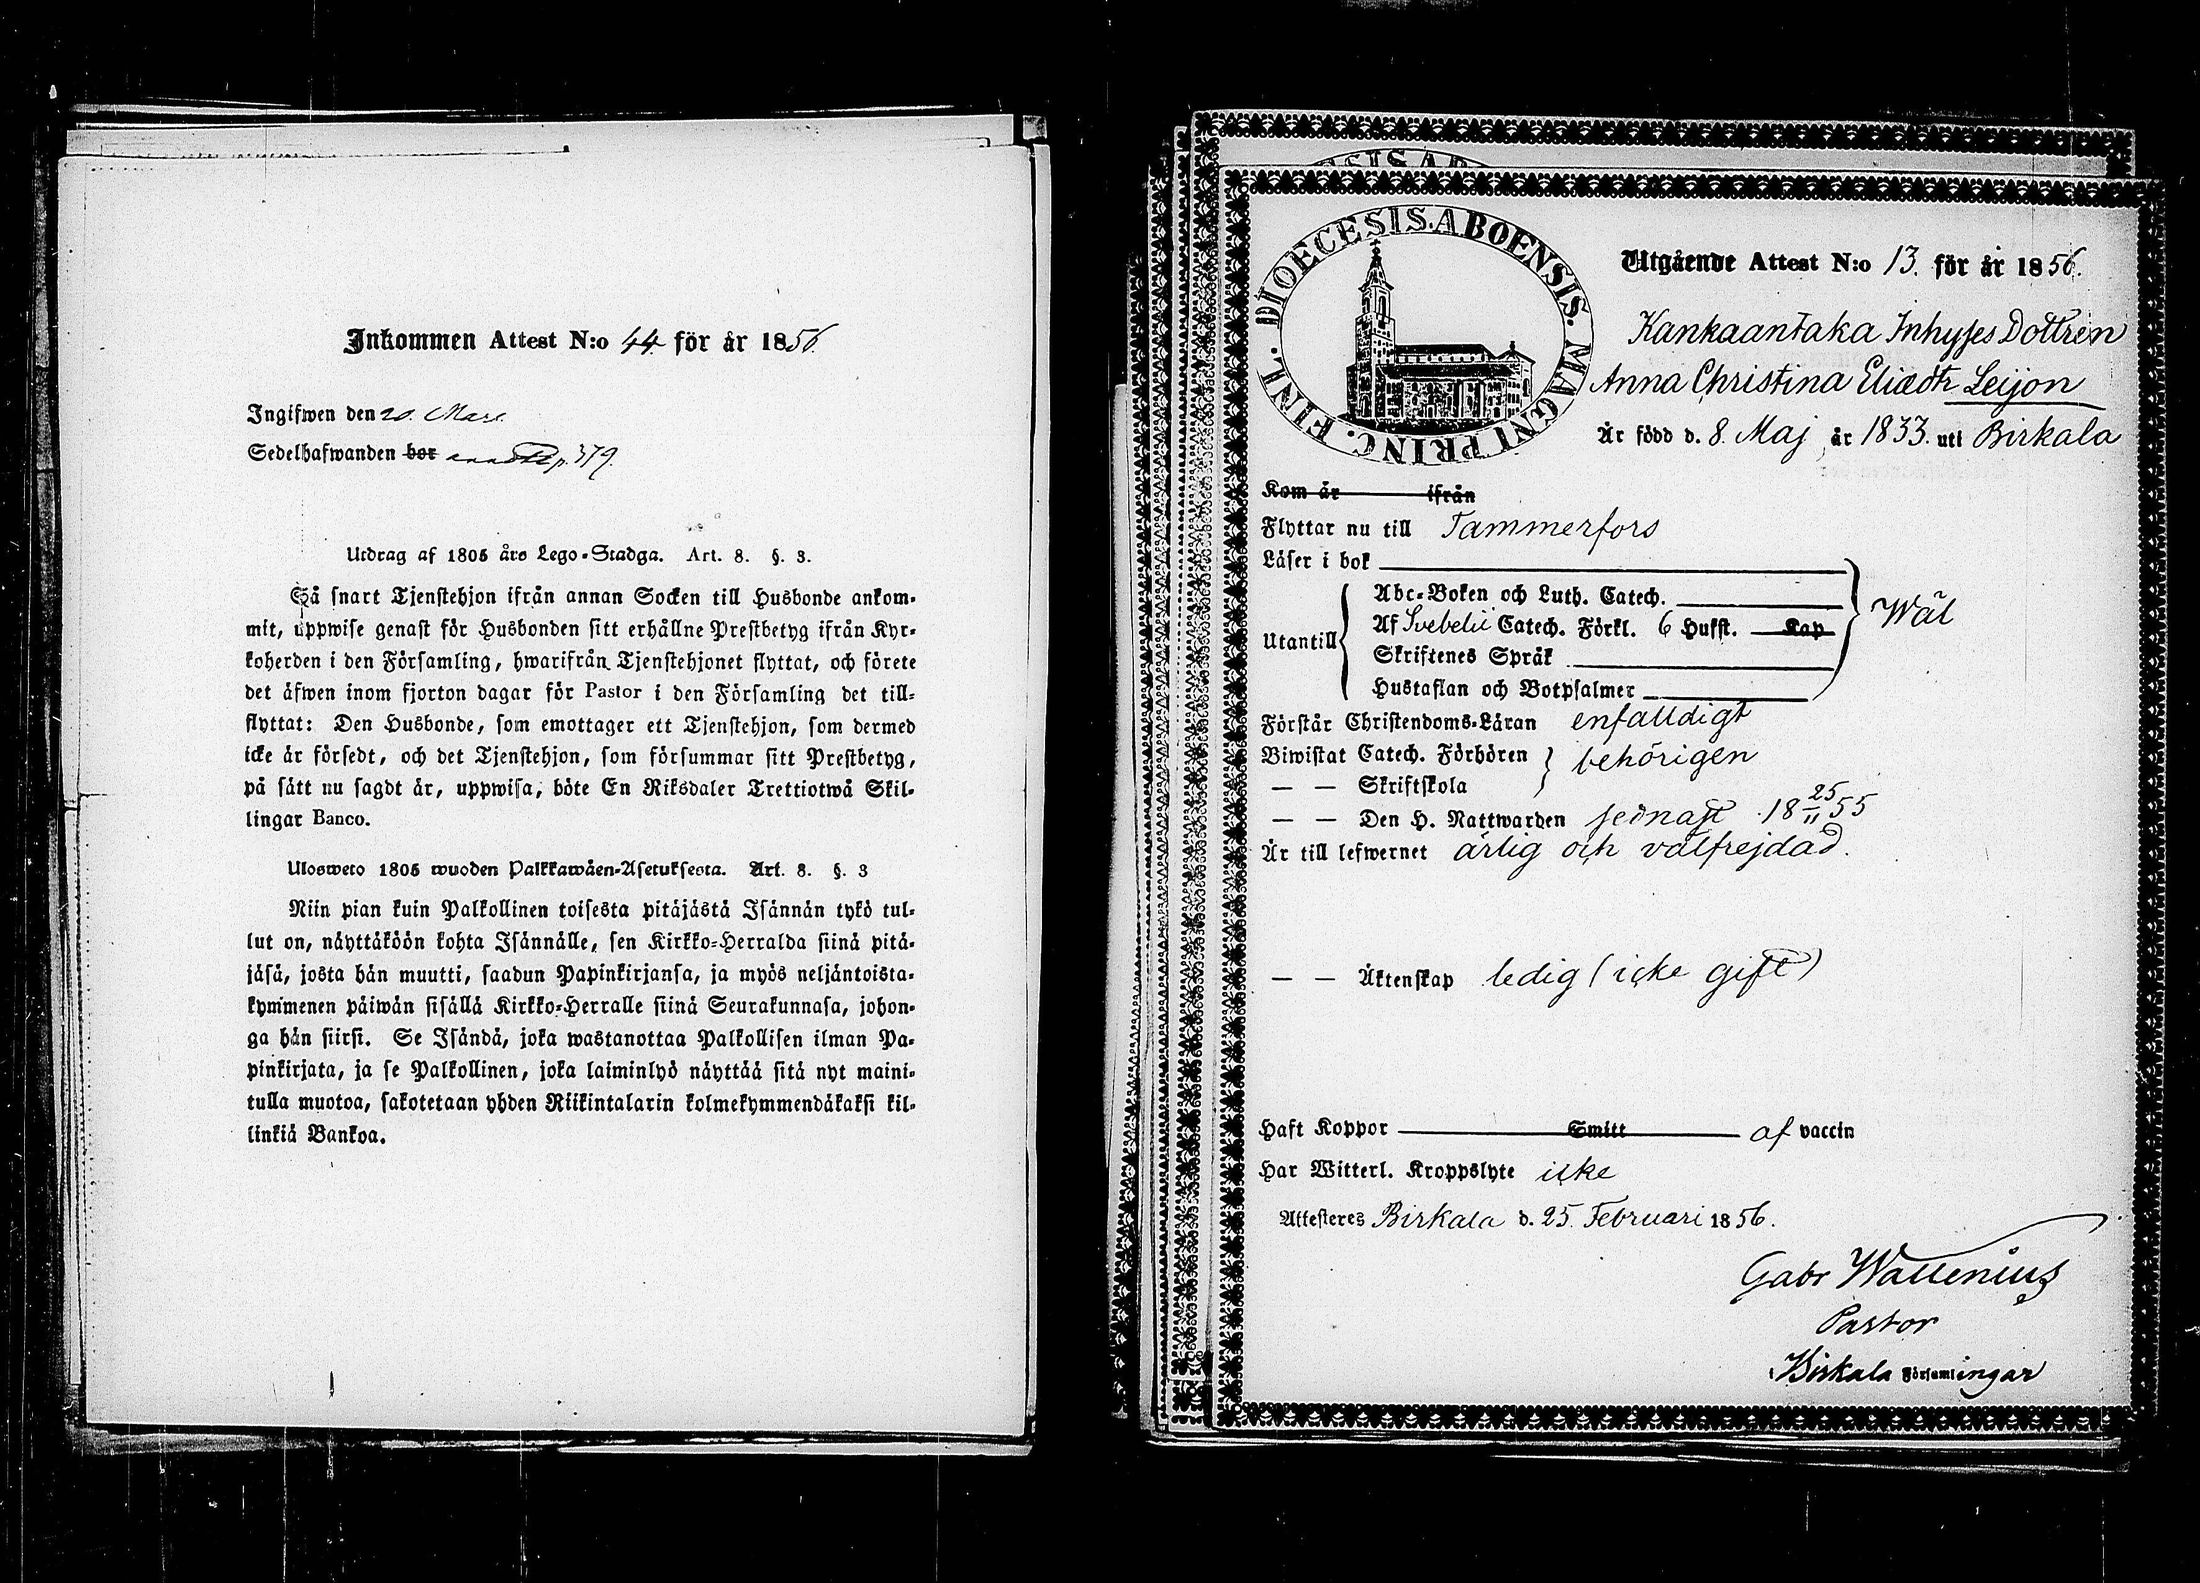 Inkommen Attest N:o 44. för år 1856.
Ingifwen den 20. Mars.
Sedelhafwanden bor p. 379.
Utdrag af 1805 års Lego-Stadga. Art. 8. §. 3.
Så snart Tjenstehjon ifrån annan Socken till Husbonde ankom-
mit, uppwise genast för Husbonden sitt erhållne Prestbetyg ifrån Kyr-
koherden i den Församling, hwarifrån Tjenstehjonet flyttat, och förete
det äfwen inom fjorton dagar för Pastor i den Församling det till-
flyttat: Den Husbonde, som emottager ett Tjenstehjon, som dermed
icke är försedt, och det Tjenstehjon, som försummar sitt Prestbetyg,
på sätt nu sagdt är, uppwisa, böte En Riksdaler Trettiotwå Skil-
lingar Banco.
Ulosweto 1805 wuoden Palkkawäen-Asetuksesta. Art. 8. §. 3
Niin pian kuin Palkollinen toisesta pitäjästä Isännän tykö tul-
lut on, näyttäköön kohta Isännälle, sen Kirkko-Herralda siinä pitä-
jäsä, josta hän muutti, saadun Papinkirjansa, ja myös neljäntoista-
kymmenen päiwän sisällä Kirkko-Herralle siinä Seurakunnasa, johon-
ga hän siirsi. Se Isändä, joka wastanottaa Palkollisen ilman Pa-
pinkirjata, ja se Palkollinen, joka laiminlyö näyttää sitä nyt maini-
tulla muotoa, sakotetaan yhden Riikintalarin kolmekymmendäkaksi kil-
linkiä Bankoa.
DIOECESIS.ABOENSIS. MAGNI PRINC. FINL.
Utgående Attest N:o 13. för år 1856.
Kankaantaka Inhyses Dottren
Anna Christina Eliædtr Leijon
Är född d. 8. Maj år 1833. uti Birkala
Kom år ifrån
Flyttar nu till Tammerfors
Läser i bok
Abc-Boken och Luth. Catech.
Utantill Af Svebelii Catech. Förkl. 6 Hufst. Kap Wäl
Skriftenes Språk
Hustaflan och Botpsalmer
Förstår Christendoms-Läran enfalldigt
Biwistat Catech. Förhören behörigen
— — Skriftskola
— — Den H. Nattwarden sednast 18 25/11 55
Är till lefwernet ärlig och välfrejdad.
— — Äktenskap ledig (icke gift)
Haft Koppor Smitt af vaccin
Har Witterl. Kroppslyte icke
Attesteres Birkala d. 25. Februari 1856.
Gabr Wallenius
Pastor
i Birkala Församlingar